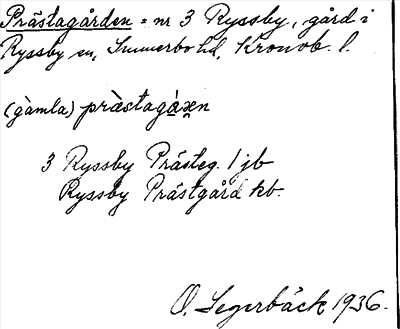 Prästagården = nr 3 Ryssby, gård i
Ryssby sn, Sunnerbo hd, Kronob. l.
(gàmla) pràstagàxn
3 Ryssby Prästeg. 1 jb
Ryssby Prästgård kb.
O. Segerbäck 1936.